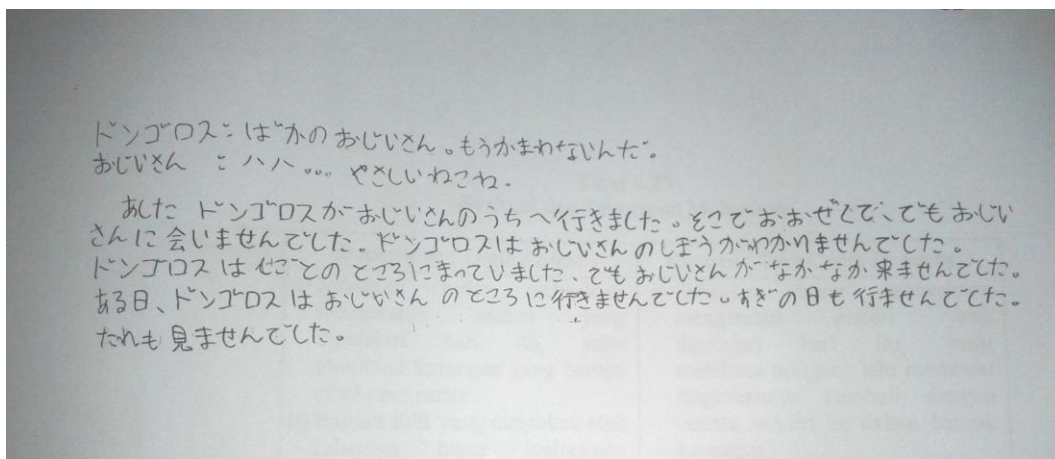 ドンゴロス：ばかのおじいさん。もうかまわないんだ。
おじいさん：ハハ... やさしいねこね。
あした ドンゴロスがおじいさんのうちへ行きました。そこでおおぜとで、でもおじい
さんに会いませんでした。ドンゴロスはおじいさんのしぼうがわかりませんでした。
ドンゴロスはせごとのところにまっていました、でもおじいさんがなかなか来ませんでした。
ある日、ドンゴロスはおじいさんのところに行きませんでした。すぎの日も行ませんでした。
たれも見ませんでした。